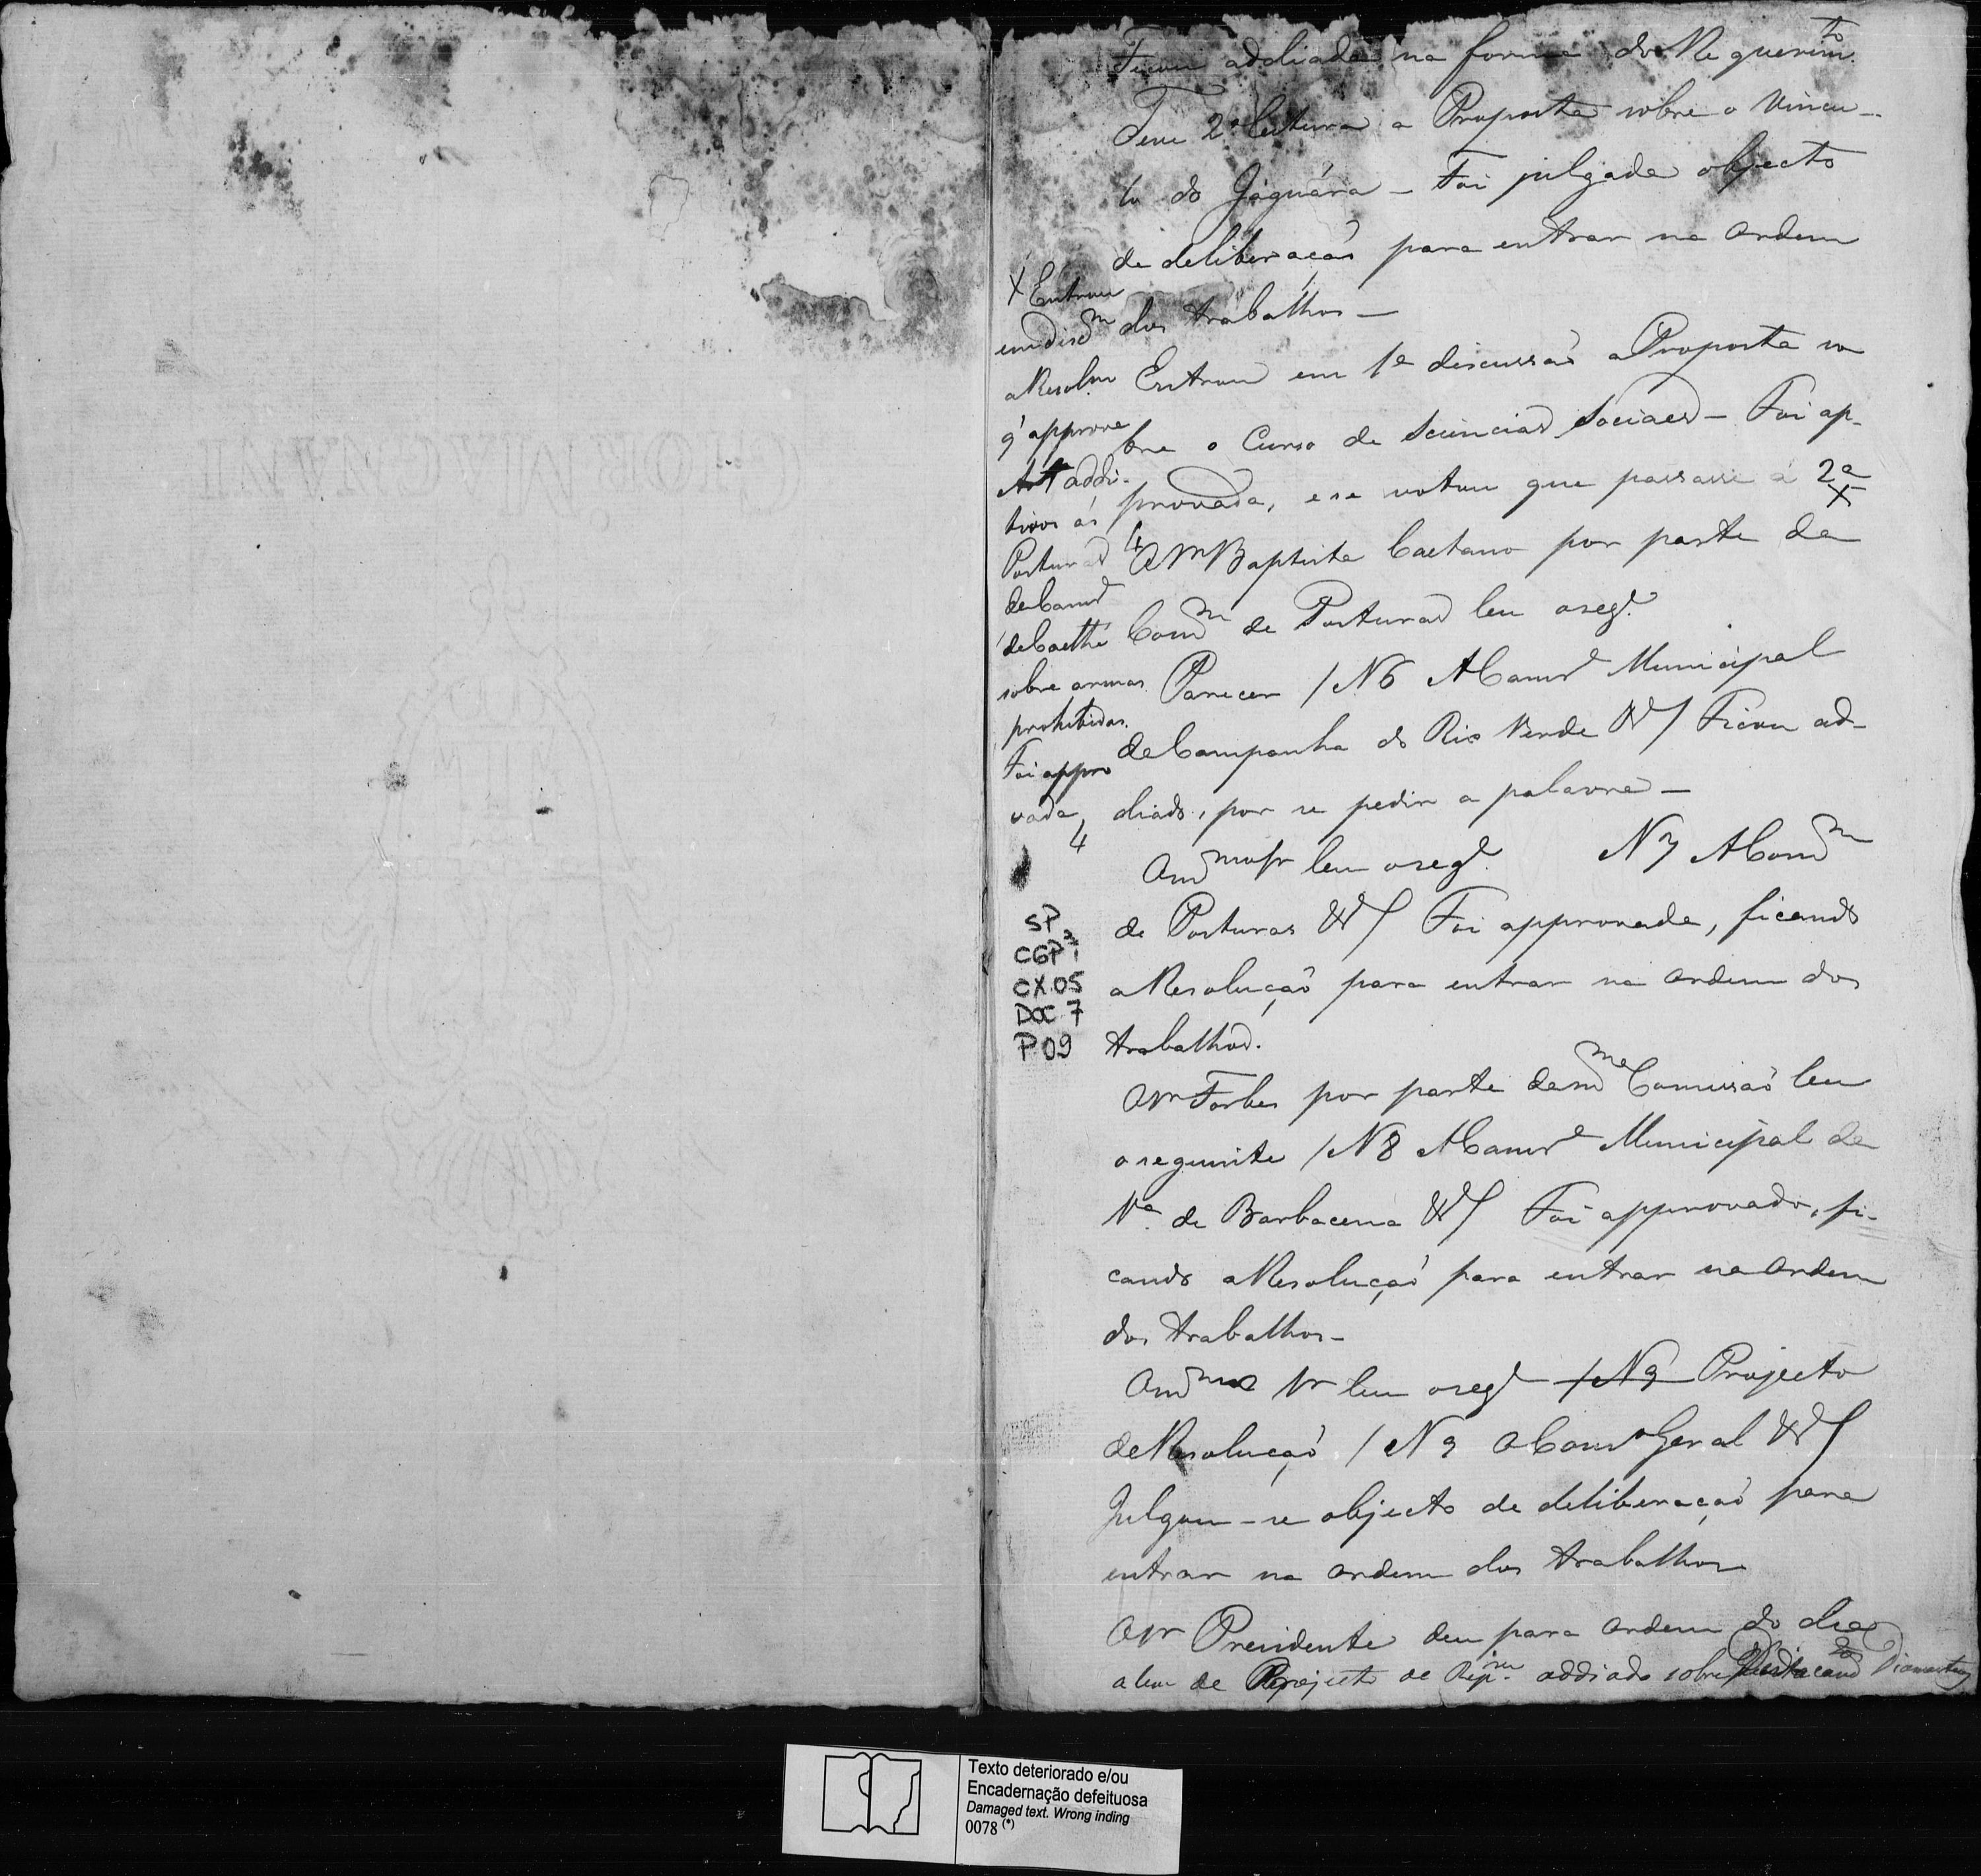 Ficou addiada na forma do Requerim.to
Teve 2.a leitura a Proposta sobre o Vincu-
lo do Jaguára - Foi julgada objecto
de deliberaçaõ para entrar na ordem
dos trabalhos -
Entrou em 1a discussaõ a Proposta so
bre o Curso de Sciencias Sociaes - Foi ap-
provada, e se votou que passasse á 2a X
O Sr Baptista Caetano por parte da
Comm de Posturas leu o seg.e
Parecer / N 6 A Camr.a Municipal
da Campanha do Rio Verde &/ Ficou ad-
diado, por se pedir a palavra -
O mmo Sr leu o seg.e N 7 A Comm
de Posturas &/ Foi approvada, ficando
a Resoluçaõ para entrar na ordem dos
trabalhos.
O Sr Forbes por parte da mma Comissaõ leu
o seguinte / N 8 A Camr.a Municipal da
Va. de Barbacena &/ Foi approvado, fi-
cando a Resoluçaõ para entrar na ordem
dos trabalhos -
O mmo Sr leu o seg.e / N 9 Projecto
de Resoluçaõ / N 9 O Cons.o Geral &/
Julgou-se objecto de deliberaçaõ para
entrar na ordem dos trabalhos
O Sr Presidente deu para ordem do dia
alem do Projecto de Rep.m addiado sobre Diamantino
X Entrou
em discm
a Resolm
q' approva
Art addi-
tivos ás
Posturas
da Camr.a
de Caethé
sobre armas
prohibidas.
Foi appro
vada,
4
SP
CGP 1
CX.05
DOC 7
P.09
Texto deteriorado e/ou
Encadernação defeituosa
Damaged text. Wrong inding
0078 (*)